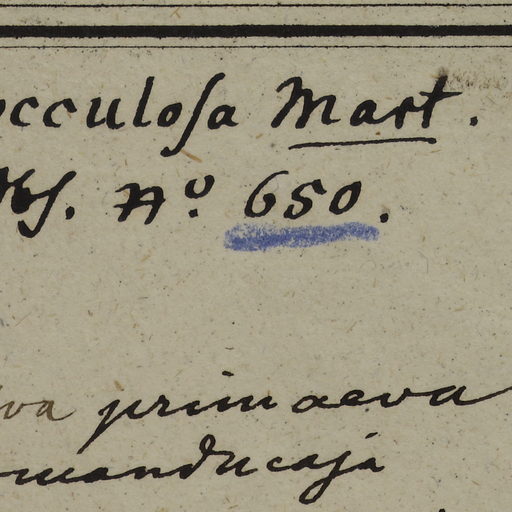 occuloſa Mart.
Obſ. Nº. 650.
lva primaeva
manducaja